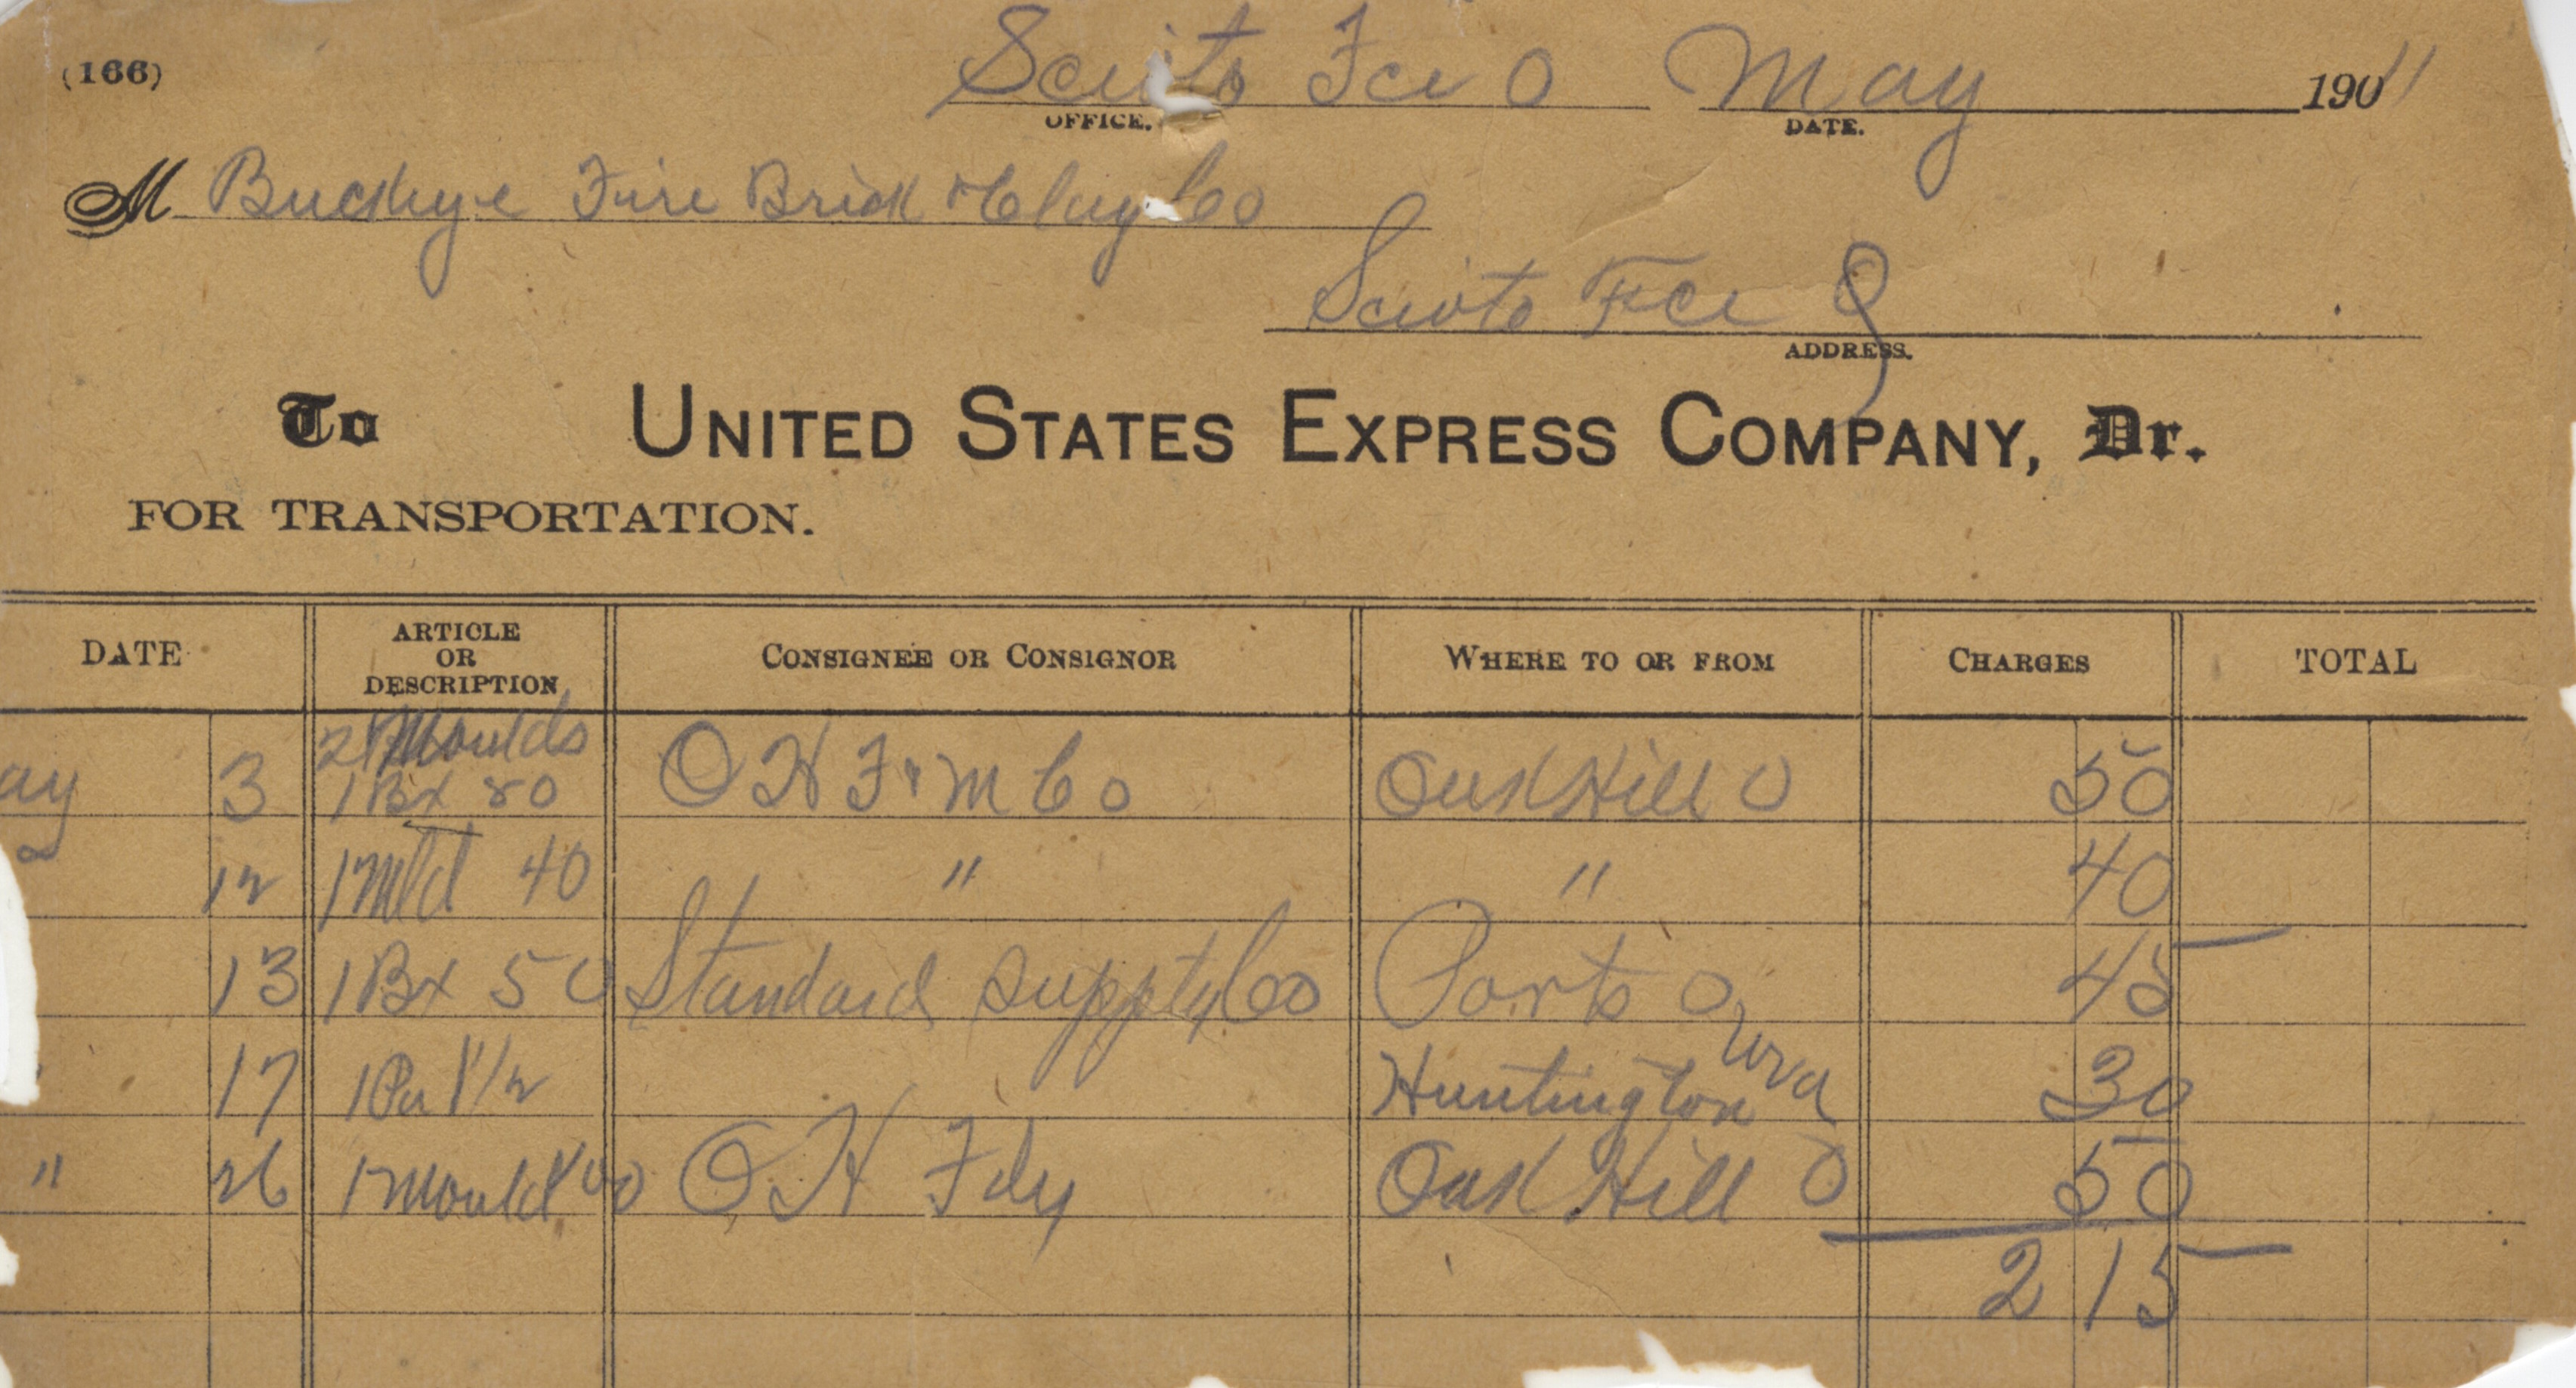 (166) Scioto Fce O May 190 11
OFFICE. DATE.
M Buckeye Fire Brick & Clay Co
Scioto Fce O
ADDRESS.
To UNITED STATES EXPRESS COMPANY, Dr.
FOR TRANSPORTATION.
DATE ARTICLE OR DESCRIPTION CONSIGNEE OR CONSIGNOR WHERE TO OR FROM CHARGES TOTAL
2 Moulds
ay 3 1 Bx 80 O H F & M Co Oak Hill O 50
12 1 Mld 40 " " 40
13 1 Bx 50 Standard Supply Co Ports O 45
17 1 Pa 1 1/2 Huntington Wva 30
" 26 1 Mould 100 O H Fdy Oak Hill O 50
2 15